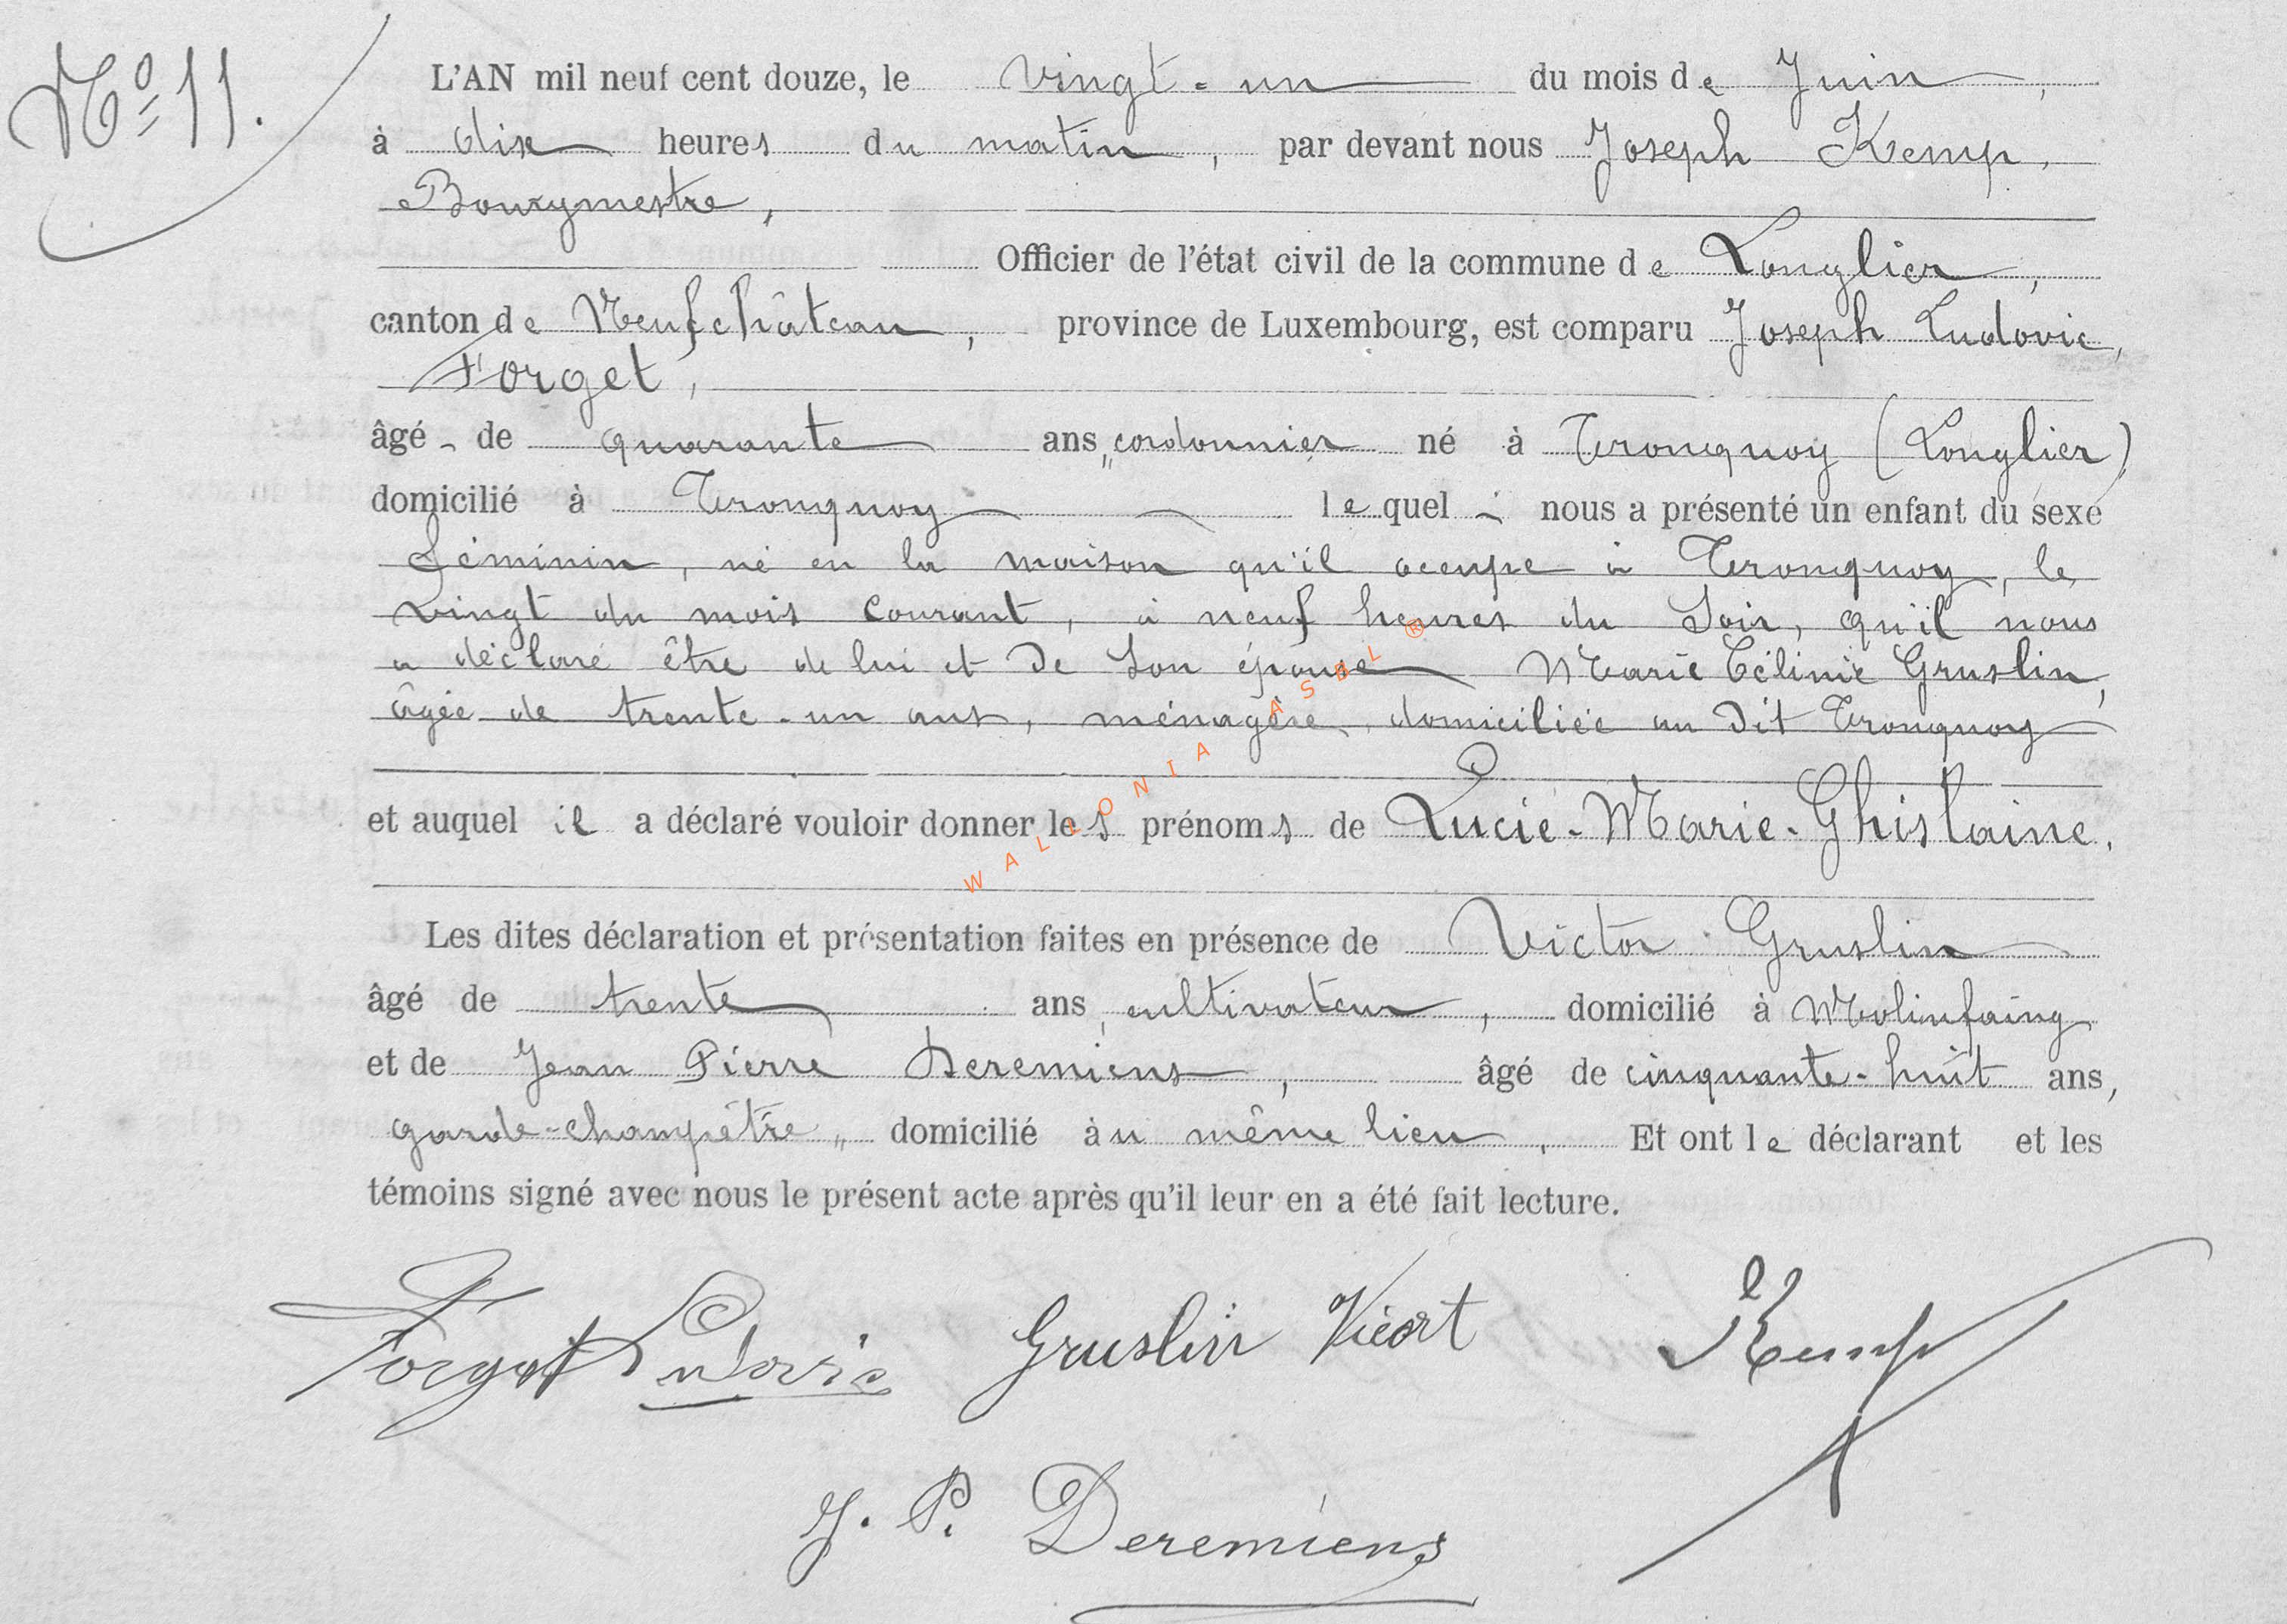 Nº 11.
L'AN mil neuf cent douze, le vingt-un du mois de Juin,
à dix heures du matin, par devant nous Joseph Kemp,
Bourgmestre,
Officier de l'état civil de la commune de Longlier,
canton de Neufchâteau, province de Luxembourg, est comparu Joseph Ludovic,
Forget,
âgé de quarante ans, cordonnier né à Tronquoy (Longlier)
domicilié à Tronquoy lequel nous a présenté un enfant du sexe
féminin, né en la maison qu'il occupe à Tronquoy, le
vingt du mois courant, à neuf heures du soir, qu'il nous
a déclaré être de lui et de son épouse Marie Céline Gruslin,
âgée de trente-un ans, ménagère, domiciliée au dit Tronquoy
et auquel il a déclaré vouloir donner les prénoms de Lucie-Marie-Ghislaine.
WALLONIA ASBL ®
Les dites déclaration et présentation faites en présence de Victor Gruslin
âgé de trente ans, cultivateur, domicilié à Molinfaing
et de Jean Pierre Deremiens, âgé de cinquante-huit ans,
garde-champêtre, domicilié au même lieu. Et ont le déclarant et les
témoins signé avec nous le présent acte après qu'il leur en a été fait lecture.
Forget Ludovic Gruslin Kemp
J. P. Deremiens